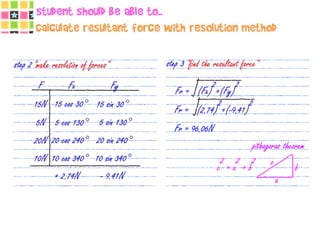 student should be able to..
calculate resultant force with resolution method
step 2 "make resolution of forces"
F Fx Fy
15N 15 cos 30° 15 sin 30°
5N 5 cos 130° 5 sin 130°
20N 20 cos 240° 20 sin 240°
10N 10 cos 340° 10 sin 340°
+2,74N -9,41N
step 3 "find the resultant force"
FR = √(Fx)²+(Fy)²
FR = √(2,74)²+(-9,41)²
FR = 96,06N
pithagoras theorem
c² = a² + b²
c
b
a